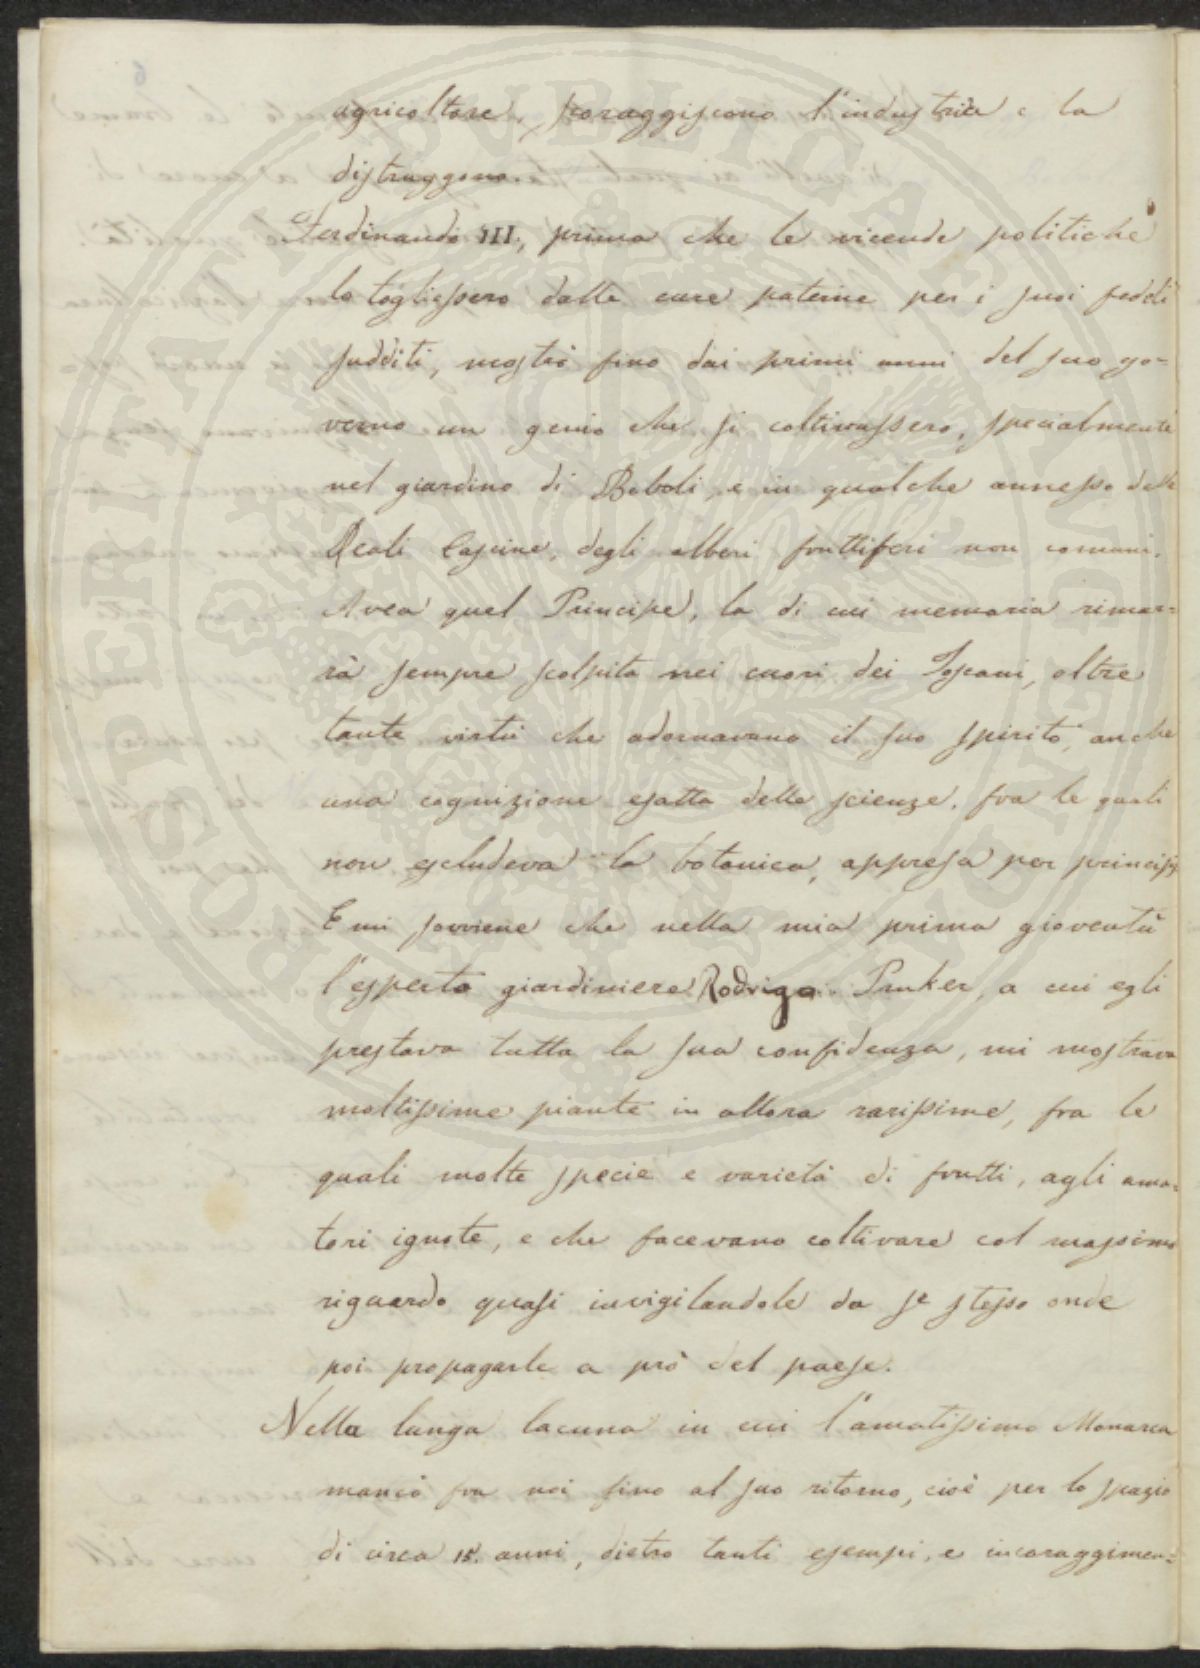 agricoltore, scoraggiscono l'industria e la
distruggono.
Ferdinando III., prima che le vicende politiche
lo togliessero dalle cure paterne per i suoi fedeli
sudditi, mostrò fino dai primi anni del suo go=
verno un genio che si coltivassero, specialmente
nel giardino di Boboli, e in qualche annesso delle
Reali Cascine, degli alberi fruttiferi non comuni.
Avea quel Principe, la di cui memoria rimar=
rà sempre scolpita nei cuori dei Toscani, oltre
tante virtù che adornavano il suo spirito, anche
una cognizione esatta delle scienze, fra le quali
non escludeva la botanica, appresa per principj.
E mi sovviene che nella mia prima gioventù
l'esperto giardiniere Rodrigo Pruker, a cui egli
prestava tutta la sua confidenza, mi mostrava
moltissime piante in allora rarissime, fra le
quali molte specie e varietà di frutti, agli ama=
tori ignote, e che facevano coltivare col massimo
riguardo quasi invigilandole da se stesso onde
poi propagarle a prò del paese.
Nella lunga lacuna in cui l'amatissimo Monarca
mancò fra noi fino al suo ritorno, cioè per lo spazio
di circa 15. anni, dietro tanti esempi, e incoraggimen=
PROSPERITATI PUBLICAE AUGENDAE